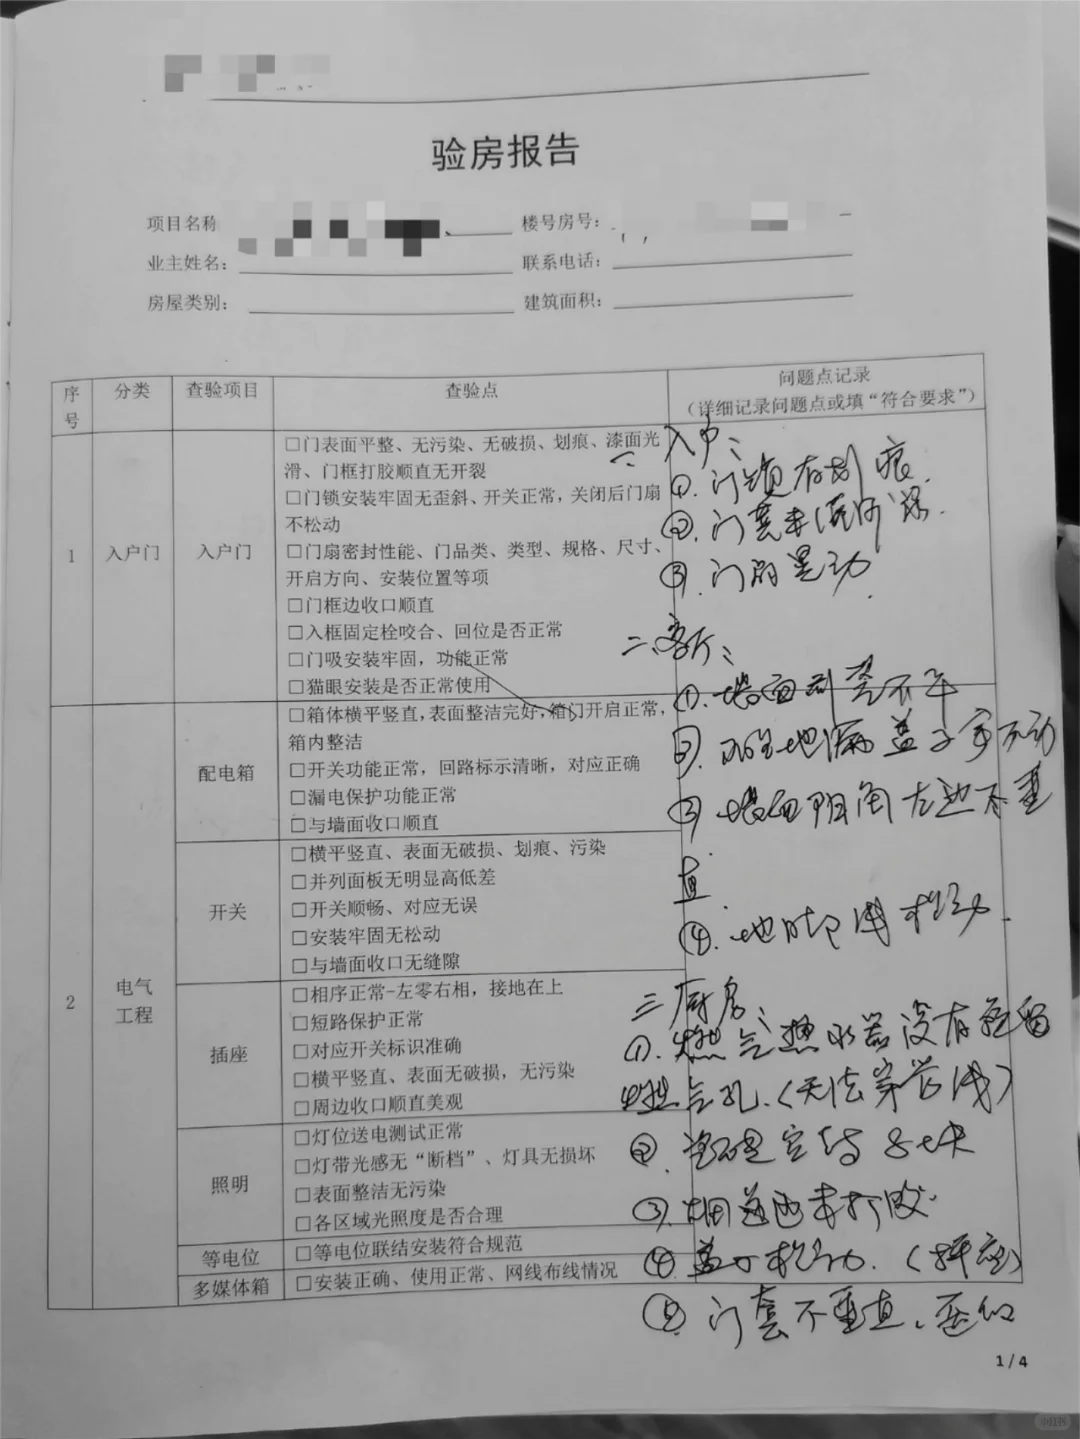 验房报告
项目名称
楼号房号：
业主姓名：
联系电话：
房屋类别：
建筑面积：
序号
分类
查验项目
查验点
问题点记录
（详细记录问题点或填“符合要求”）
1
入户门
入户门
□门表面平整、无污染、无破损、划痕、漆面光
滑、门框打胶顺直无开裂
□门锁安装牢固无歪斜、开关正常，关闭后门扇
不松动
□门扇密封性能、门品类、类型、规格、尺寸、
开启方向、安装位置等项
□门框边收口顺直
□入框固定栓咬合、回位是否正常
□门吸安装牢固，功能正常
□猫眼安装是否正常使用
2
电气
工程
配电箱
□箱体横平竖直，表面整洁完好，箱门开启正常，
箱内整洁
□开关功能正常，回路标示清晰，对应正确
□漏电保护功能正常
□与墙面收口顺直
开关
□横平竖直、表面无破损、划痕、污染
□并列面板无明显高低差
□开关顺畅、对应无误
□安装牢固无松动
□与墙面收口无缝隙
插座
□相序正常-左零右相，接地在上
□短路保护正常
□对应开关标识准确
□横平竖直、表面无破损，无污染
□周边收口顺直美观
照明
□灯位送电测试正常
□灯带光感无“断档”、灯具无损坏
□表面整洁无污染
□各区域光照度是否合理
等电位
□等电位联结安装符合规范
多媒体箱
□安装正确、使用正常、网线布线情况
一、入户：
①.门锁有划痕.
②.门套未清理.
③.门扇晃动.
二、客厅：
①.墙面刮
不平
②.地漏盖子
不动
③.墙面阴角左边不垂
直
④.地脚线松动.
三、厨房：
①.燃气热水器没有预留
燃气孔.（无法穿管线）
②.瓷砖空鼓8块
③.烟道边未打胶.
④.盖子松动.
⑤.门套不垂直、
1 / 4
小红书